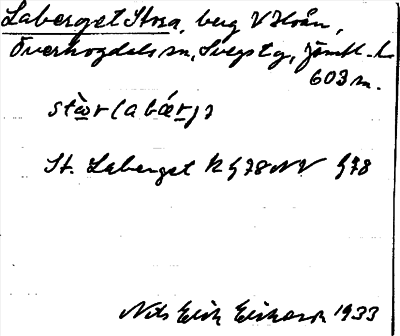 Laberget Stora, berg V Hoån,
Överhogdals sn, Svegs tg, Jämtl. l.
603 m.
St. Laberget K G 78 NV G 78
Nils Erik Eriksson 1933